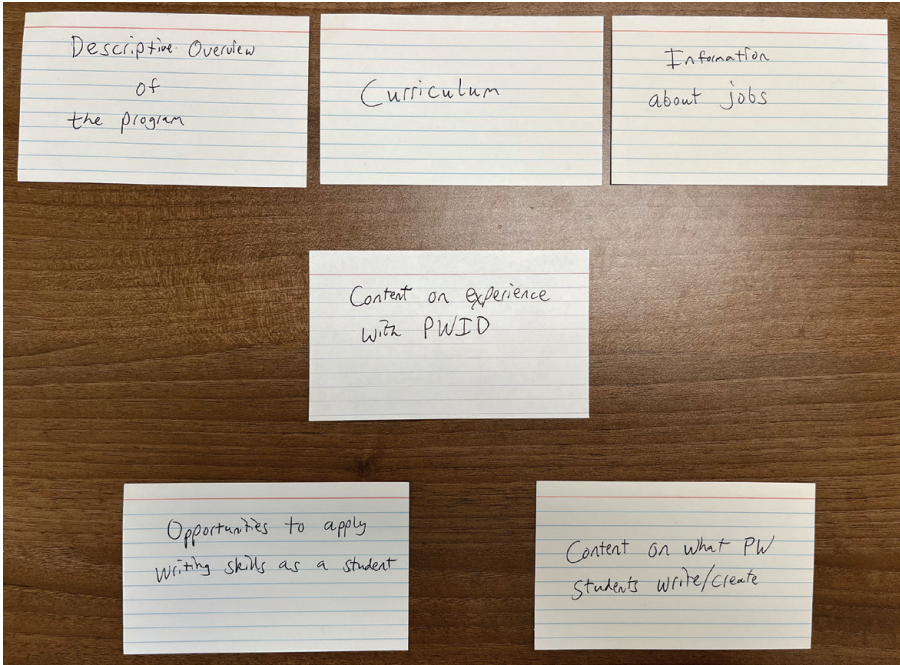 Descriptive Overview
of
the program
Curriculum
Information
about jobs
Content on experience
with PWID
Opportunities to apply
writing skills as a student
Content on what PW
students write/create